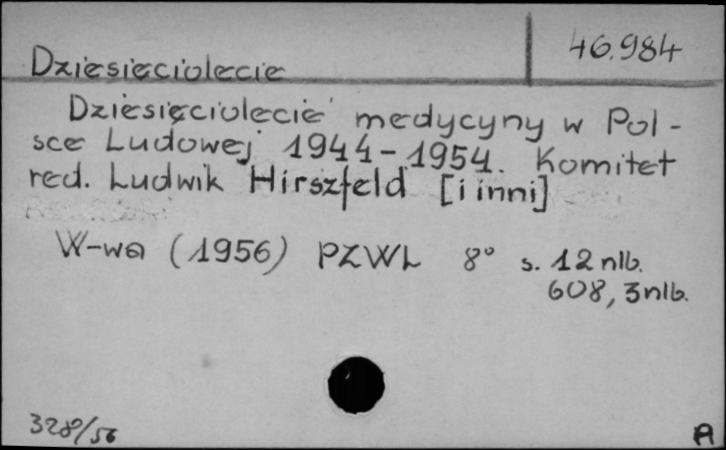 46.984
Dziesięciolecie
Dziesięciolecie medycyny w Pol-
sce Ludowej 1944-1954. Komitet
red. Ludwik Hirszfeld [i inni]
W-wa (1956) PZWL 8° s. 12 nlb.
608, 3 nlb.
328/56
A